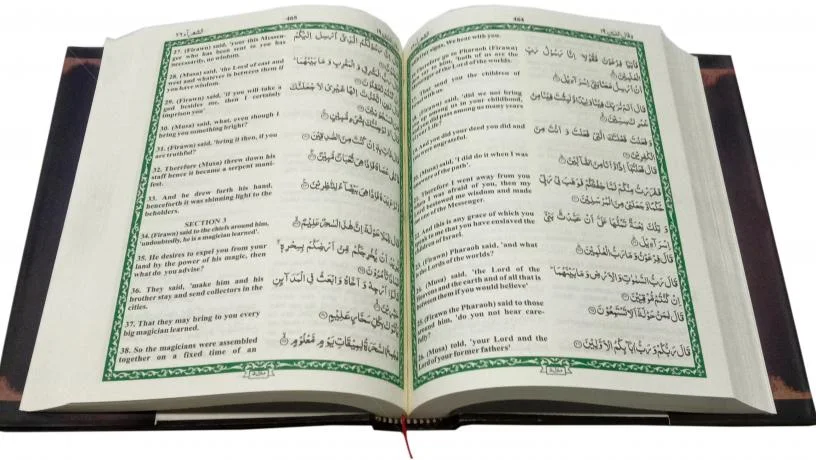 464
وقال الذين ١٩
signs, We hear with you.
Therefore go to Pharaoh (Firawn)
say to him, 'both of us are the
of the Lord of the worlds.
the children of
(Firawn) said, 'did we not bring
up among us in your childhood,
did pass among us many years
And you did your deed you did and
you were ungrateful.
(Musa) said, 'I did do it when I was
of the path'.
Therefore I went away from you
I was afraid of you, then my
bestowed me wisdom and made
one of the Messenger.
And this is any grace of which you
me that you have enslaved the
children of Israel.
(Firawn) Pharaoh said, 'and what
the Lord of the worlds?
(Musa) said, 'the Lord of the
heavens and the earth and all of that is
between them if you would believe'
(Firawn the Pharaoh) said to those
around him, 'do you not hear care-
fully?
26. (Musa) told, 'your Lord and the
Lord of your former fathers'
فَأْتِيَا فِرْعَوْنَ فَقُولَا إِنَّا رَسُولُ رَبِّ
الْعٰلَمِيْنَ
أَنْ أَرْسِلْ مَعَنَا بَنِي إِسْرَآءِيْلَ
قَالَ أَلَمْ نُرَبِّكَ فِيْنَا وَلِيْدًا وَّلَبِثْتَ فِيْنَا مِنْ
عُمُرِكَ سِنِيْنَ
وَفَعَلْتَ فَعْلَتَكَ الَّتِيْ فَعَلْتَ وَأَنْتَ مِنَ
الْكٰفِرِيْنَ
قَالَ فَعَلْتُهَا إِذًا وَّأَنَا مِنَ الضَّآلِّيْنَ
فَفَرَرْتُ مِنْكُمْ لَمَّا خِفْتُكُمْ فَوَهَبَ لِيْ رَبِّيْ
حُكْمًا وَّجَعَلَنِيْ مِنَ الْمُرْسَلِيْنَ
وَتِلْكَ نِعْمَةٌ تَمُنُّهَا عَلَيَّ أَنْ عَبَّدْتَّ بَنِيْ
إِسْرَآءِيْلَ
قَالَ فِرْعَوْنُ وَمَا رَبُّ الْعٰلَمِيْنَ
قَالَ رَبُّ السَّمٰوٰتِ وَالْأَرْضِ وَمَا بَيْنَهُمَا
إِنْ كُنْتُمْ مُّوْقِنِيْنَ
قَالَ لِمَنْ حَوْلَهٗ أَلَا تَسْتَمِعُوْنَ
قَالَ رَبُّكُمْ وَرَبُّ اٰبَآئِكُمُ الْأَوَّلِيْنَ
465
الشعرآء ٢٦
27. (Firawn) said, 'your this Messen-
ger who has been sent to you has
necessarily, no wisdom.
28. (Musa) said, 'the Lord of east and
west and whatever is between them if
you have wisdom.
29. (Firawn) said, 'if you will take a
god besides me, then I certainly
imprison you'
30. (Musa) said, what, even though I
bring you something bright?
31. (Firawn) said, 'bring it then, if you
are truthful?
32. Therefore (Musa) threw down his
staff hence it became a serpent mani-
fest.
33. And he drew forth his hand,
henceforth it was shinning light to the
beholders.
SECTION 3
34. (Firawn) said to the chiefs around him,
'undoubtedly, he is a magician learned'.
35. He desires to expel you from your
land by the power of his magic, then
what do you advise?
36. They said, 'make him and his
brother stay and send collectors in the
cities.
37. That they may bring to you every
big magician learned.
38. So the magicians were assembled
together on a fixed time of an
رَسُوْلَكُمُ الَّذِيْ أُرْسِلَ إِلَيْكُمْ
الْمَشْرِقِ وَالْمَغْرِبِ وَمَا بَيْنَهُمَا
اتَّخَذْتَ إِلٰهًا غَيْرِيْ لَأَجْعَلَنَّكَ
بِشَيْءٍ مُّبِيْنٍ
إِنْ كُنْتَ مِنَ الصّٰدِقِيْنَ
عَصَاهُ فَإِذَا هِيَ ثُعْبَانٌ مُّبِيْنٌ
يَدَهٗ فَإِذَا هِيَ بَيْضَآءُ لِلنّٰظِرِيْنَ
حَوْلَهٗ إِنَّ هٰذَا لَسٰحِرٌ عَلِيْمٌ
يُخْرِجَكُمْ مِّنْ أَرْضِكُمْ بِسِحْرِهٖ
أَرْجِهْ وَأَخَاهُ وَابْعَثْ فِي الْمَدَآئِنِ
بِكُلِّ سَحَّارٍ عَلِيْمٍ
السَّحَرَةُ لِمِيْقَاتِ يَوْمٍ مَّعْلُوْمٍ